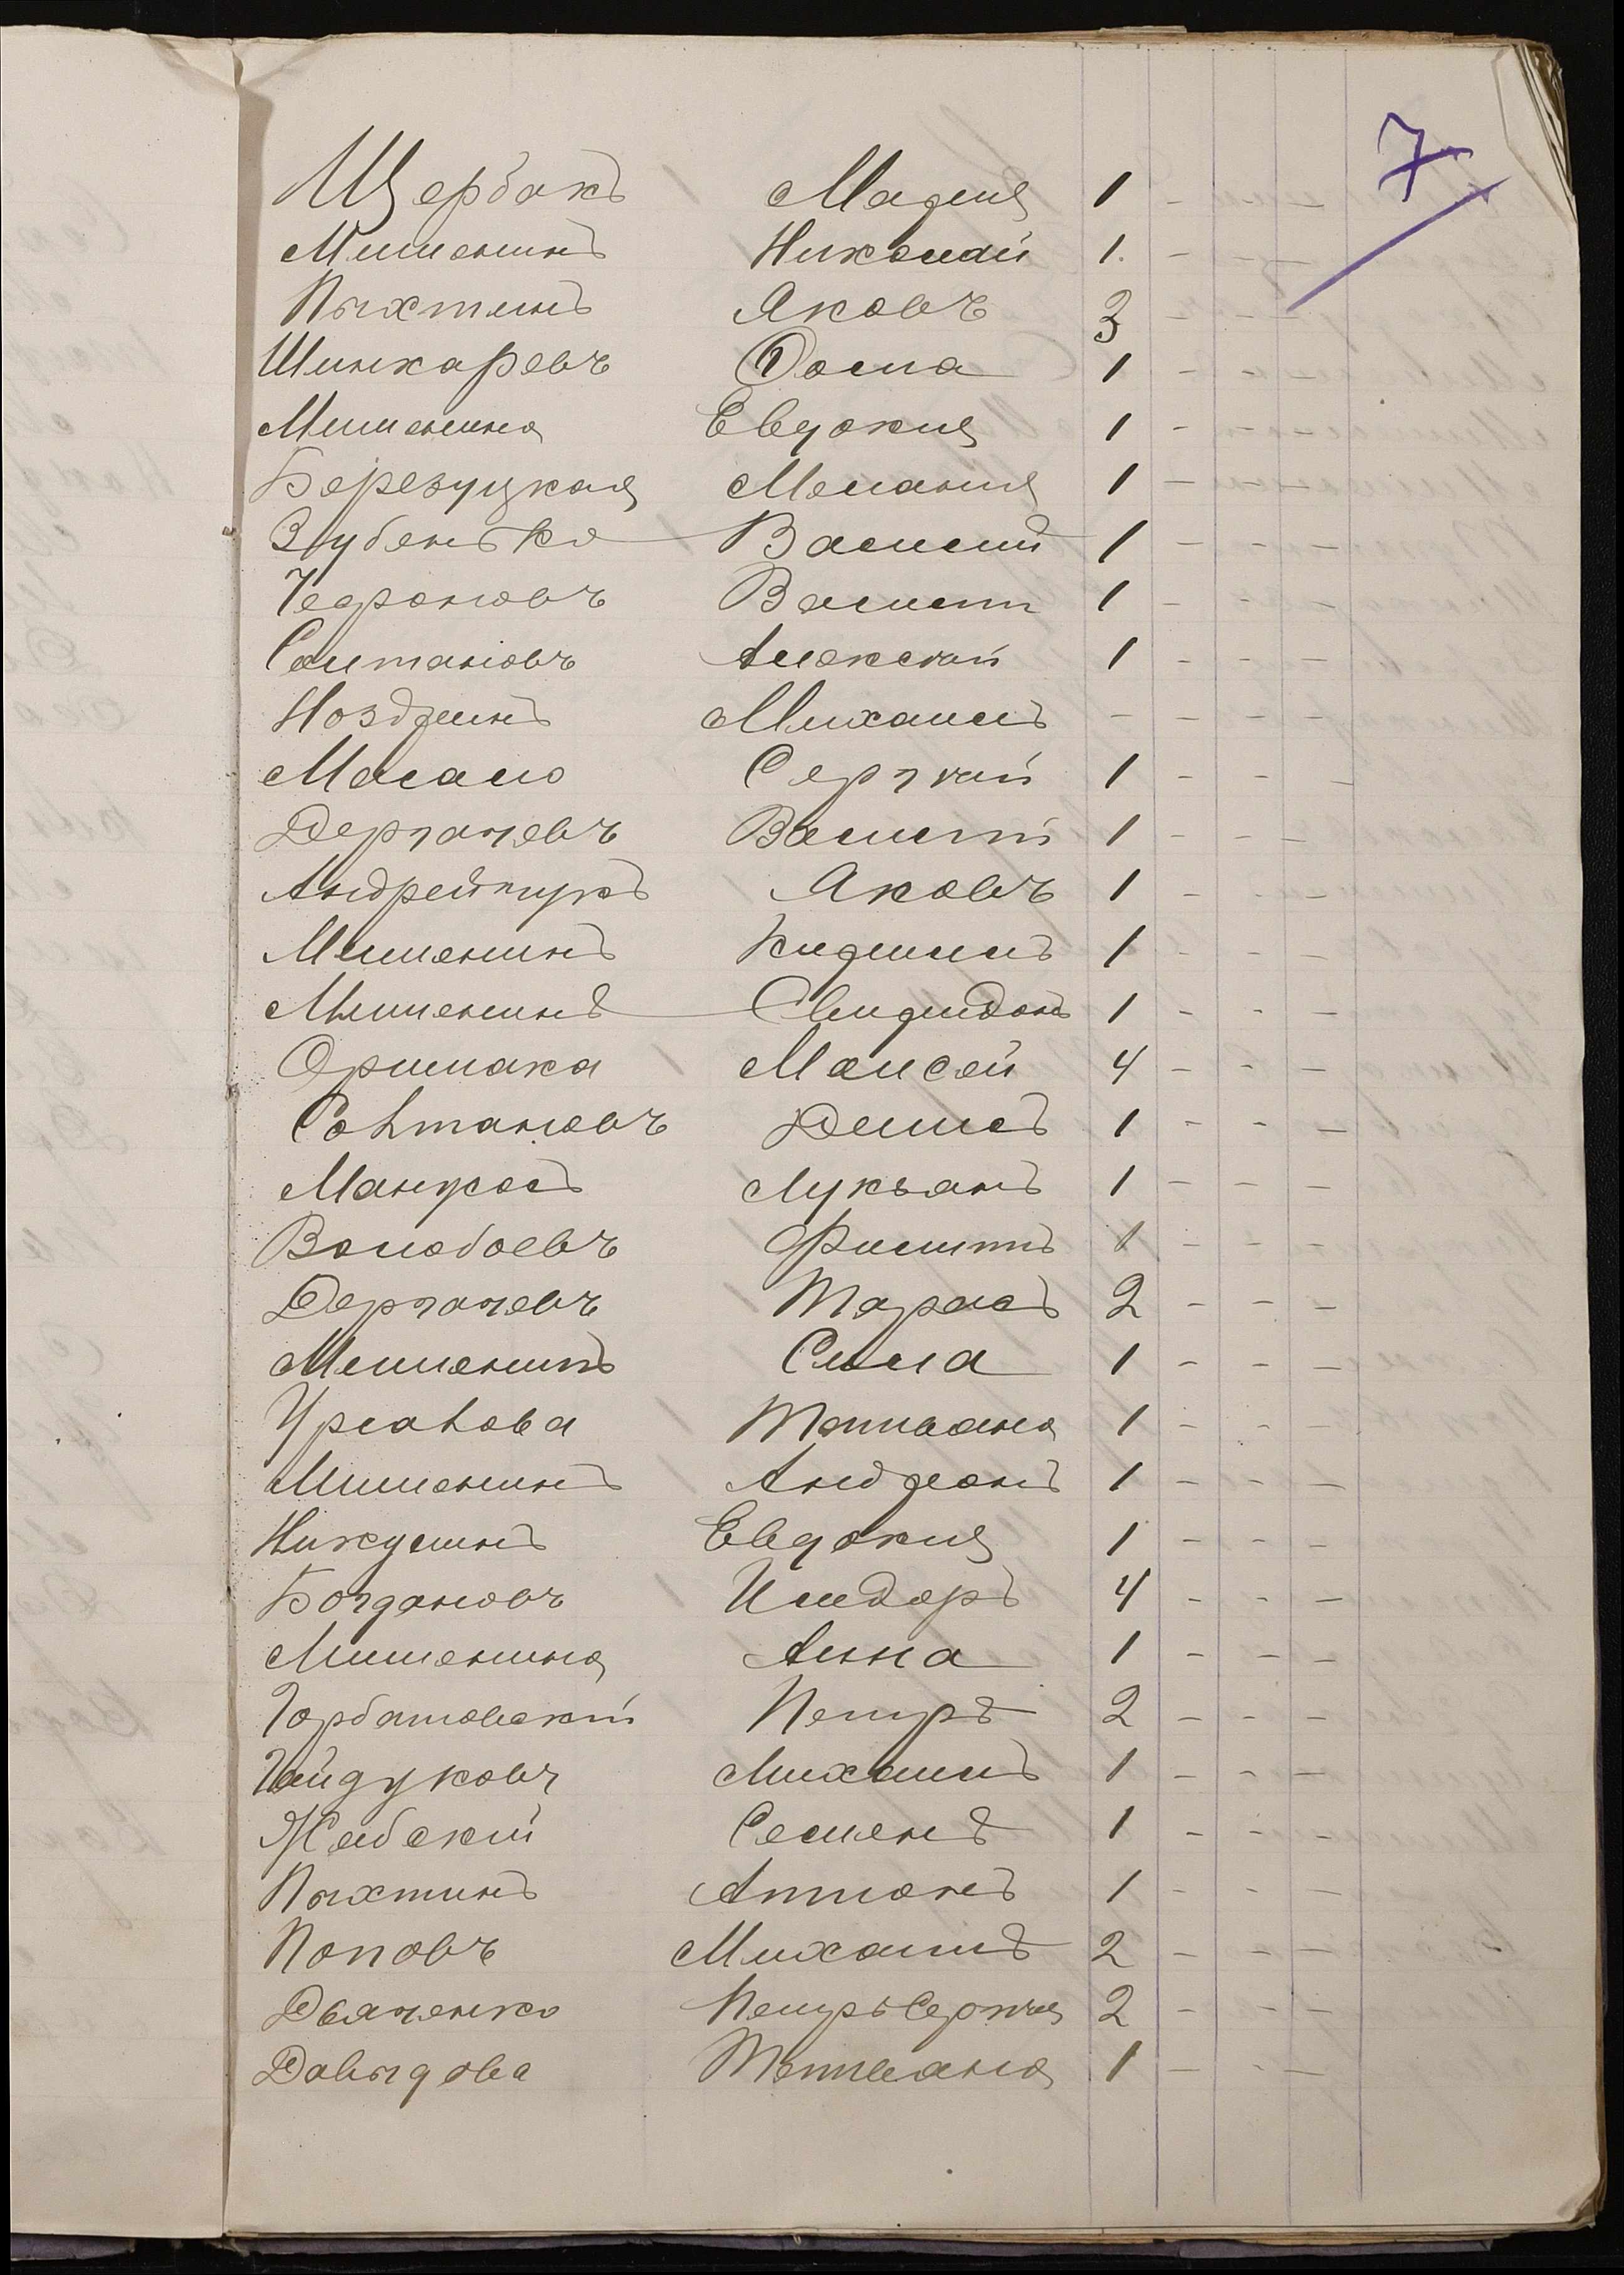 7
Щербакъ Мария 1 - - -
Мишенинъ Николай 1. - - -
Пыхтинъ Яковъ 3 - - -
Шинкаревъ Фома 1 - - -
Мишенина Евдокия 1 - - -
Березуцкая Мелания 1 - - -
Зубенько Василий 1 - - -
Василий 1 - - -
Солтановъ Алексѣй 1 - - -
Ноздринъ Михаилъ - - - -
Сергѣй 1 - - -
Дергачевъ Василій 1 - - -
Андрейчукъ Яковъ 1 - - -
Мишенинъ 1 - - -
Мишенинъ Свиридонъ 1 - - -
Моисей 4 - - -
Солтановъ Денисъ 1 - - -
Лукьянъ 1 - - -
Волобоевъ Филиппъ 1 - - -
Дергачевъ Тарасъ 2 - - -
Мишенинъ Сила 1 - - -
Татьяна 1 - - -
Мишенинъ Андреанъ 1 - - -
Никулинъ Евдокия 1 - - -
Богдановъ Исидоръ 4 - - -
Мишенина Анна 1 - - -
Горбатовскій Петръ 2 - - -
Гайдуковъ Михаилъ 1 - - -
Жабский Семенъ 1 - - -
Пыхтинъ Антонъ 1 - - -
Поповъ Михаилъ 2 - - -
Дьяченко Петръ Сергѣя 2 - - -
Давыдова Татьяна 1 - - -